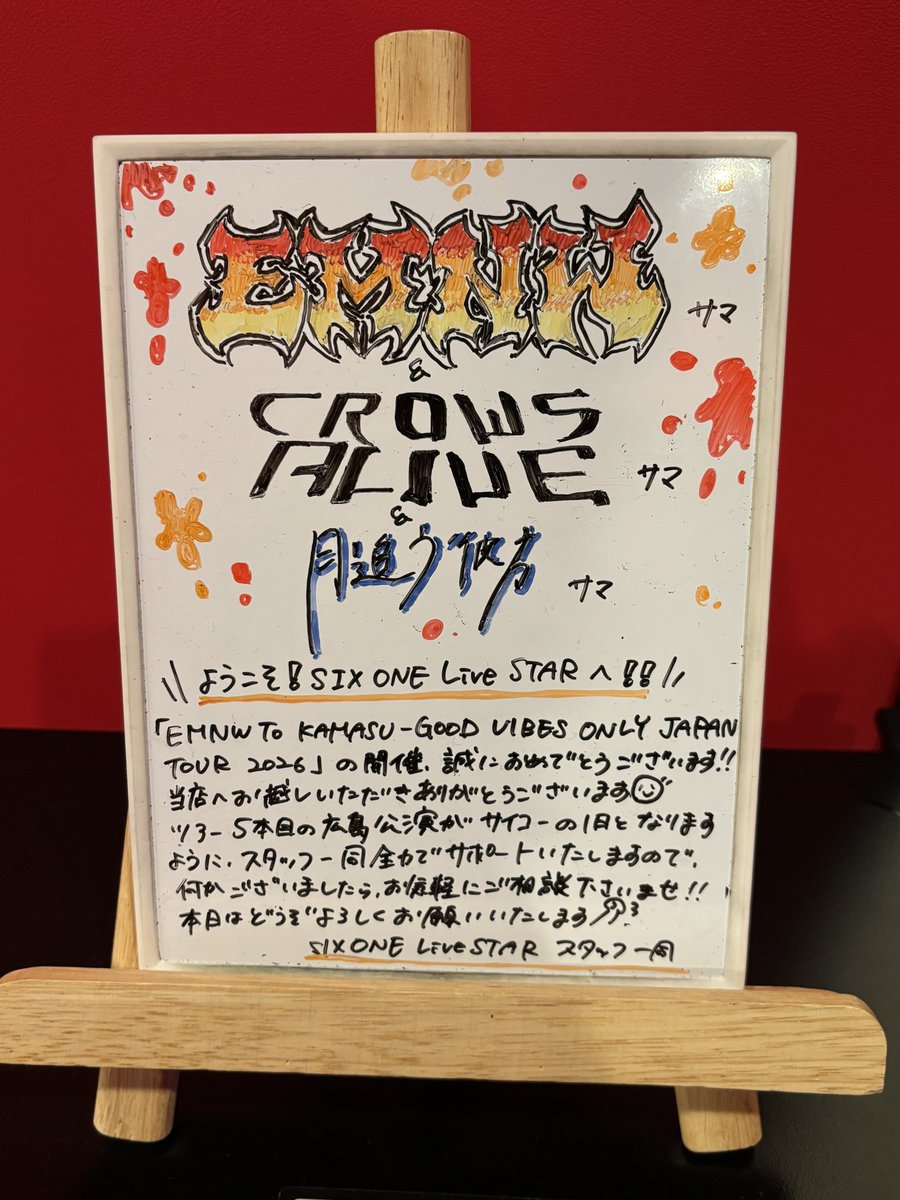 EMNW サマ
&
CROWS
ALIVE サマ
&
月追う彼方 サマ
\\ ようこそ! SIX ONE Live STARへ!! //
「EMNW To KAMASU-GOOD VIBES ONLY JAPAN
TOUR 2026」の開催、誠におめでとうございます!!
当店へお越しいただきありがとうございます
ツアー5本目の広島公演がサイコーの1日となります
ように、スタッフ一同全力でサポートいたしますので、
何かございましたら、お気軽にご相談下さいませ!!
本日はどうぞよろしくお願いいたします
SIX ONE Live STAR スタッフ一同